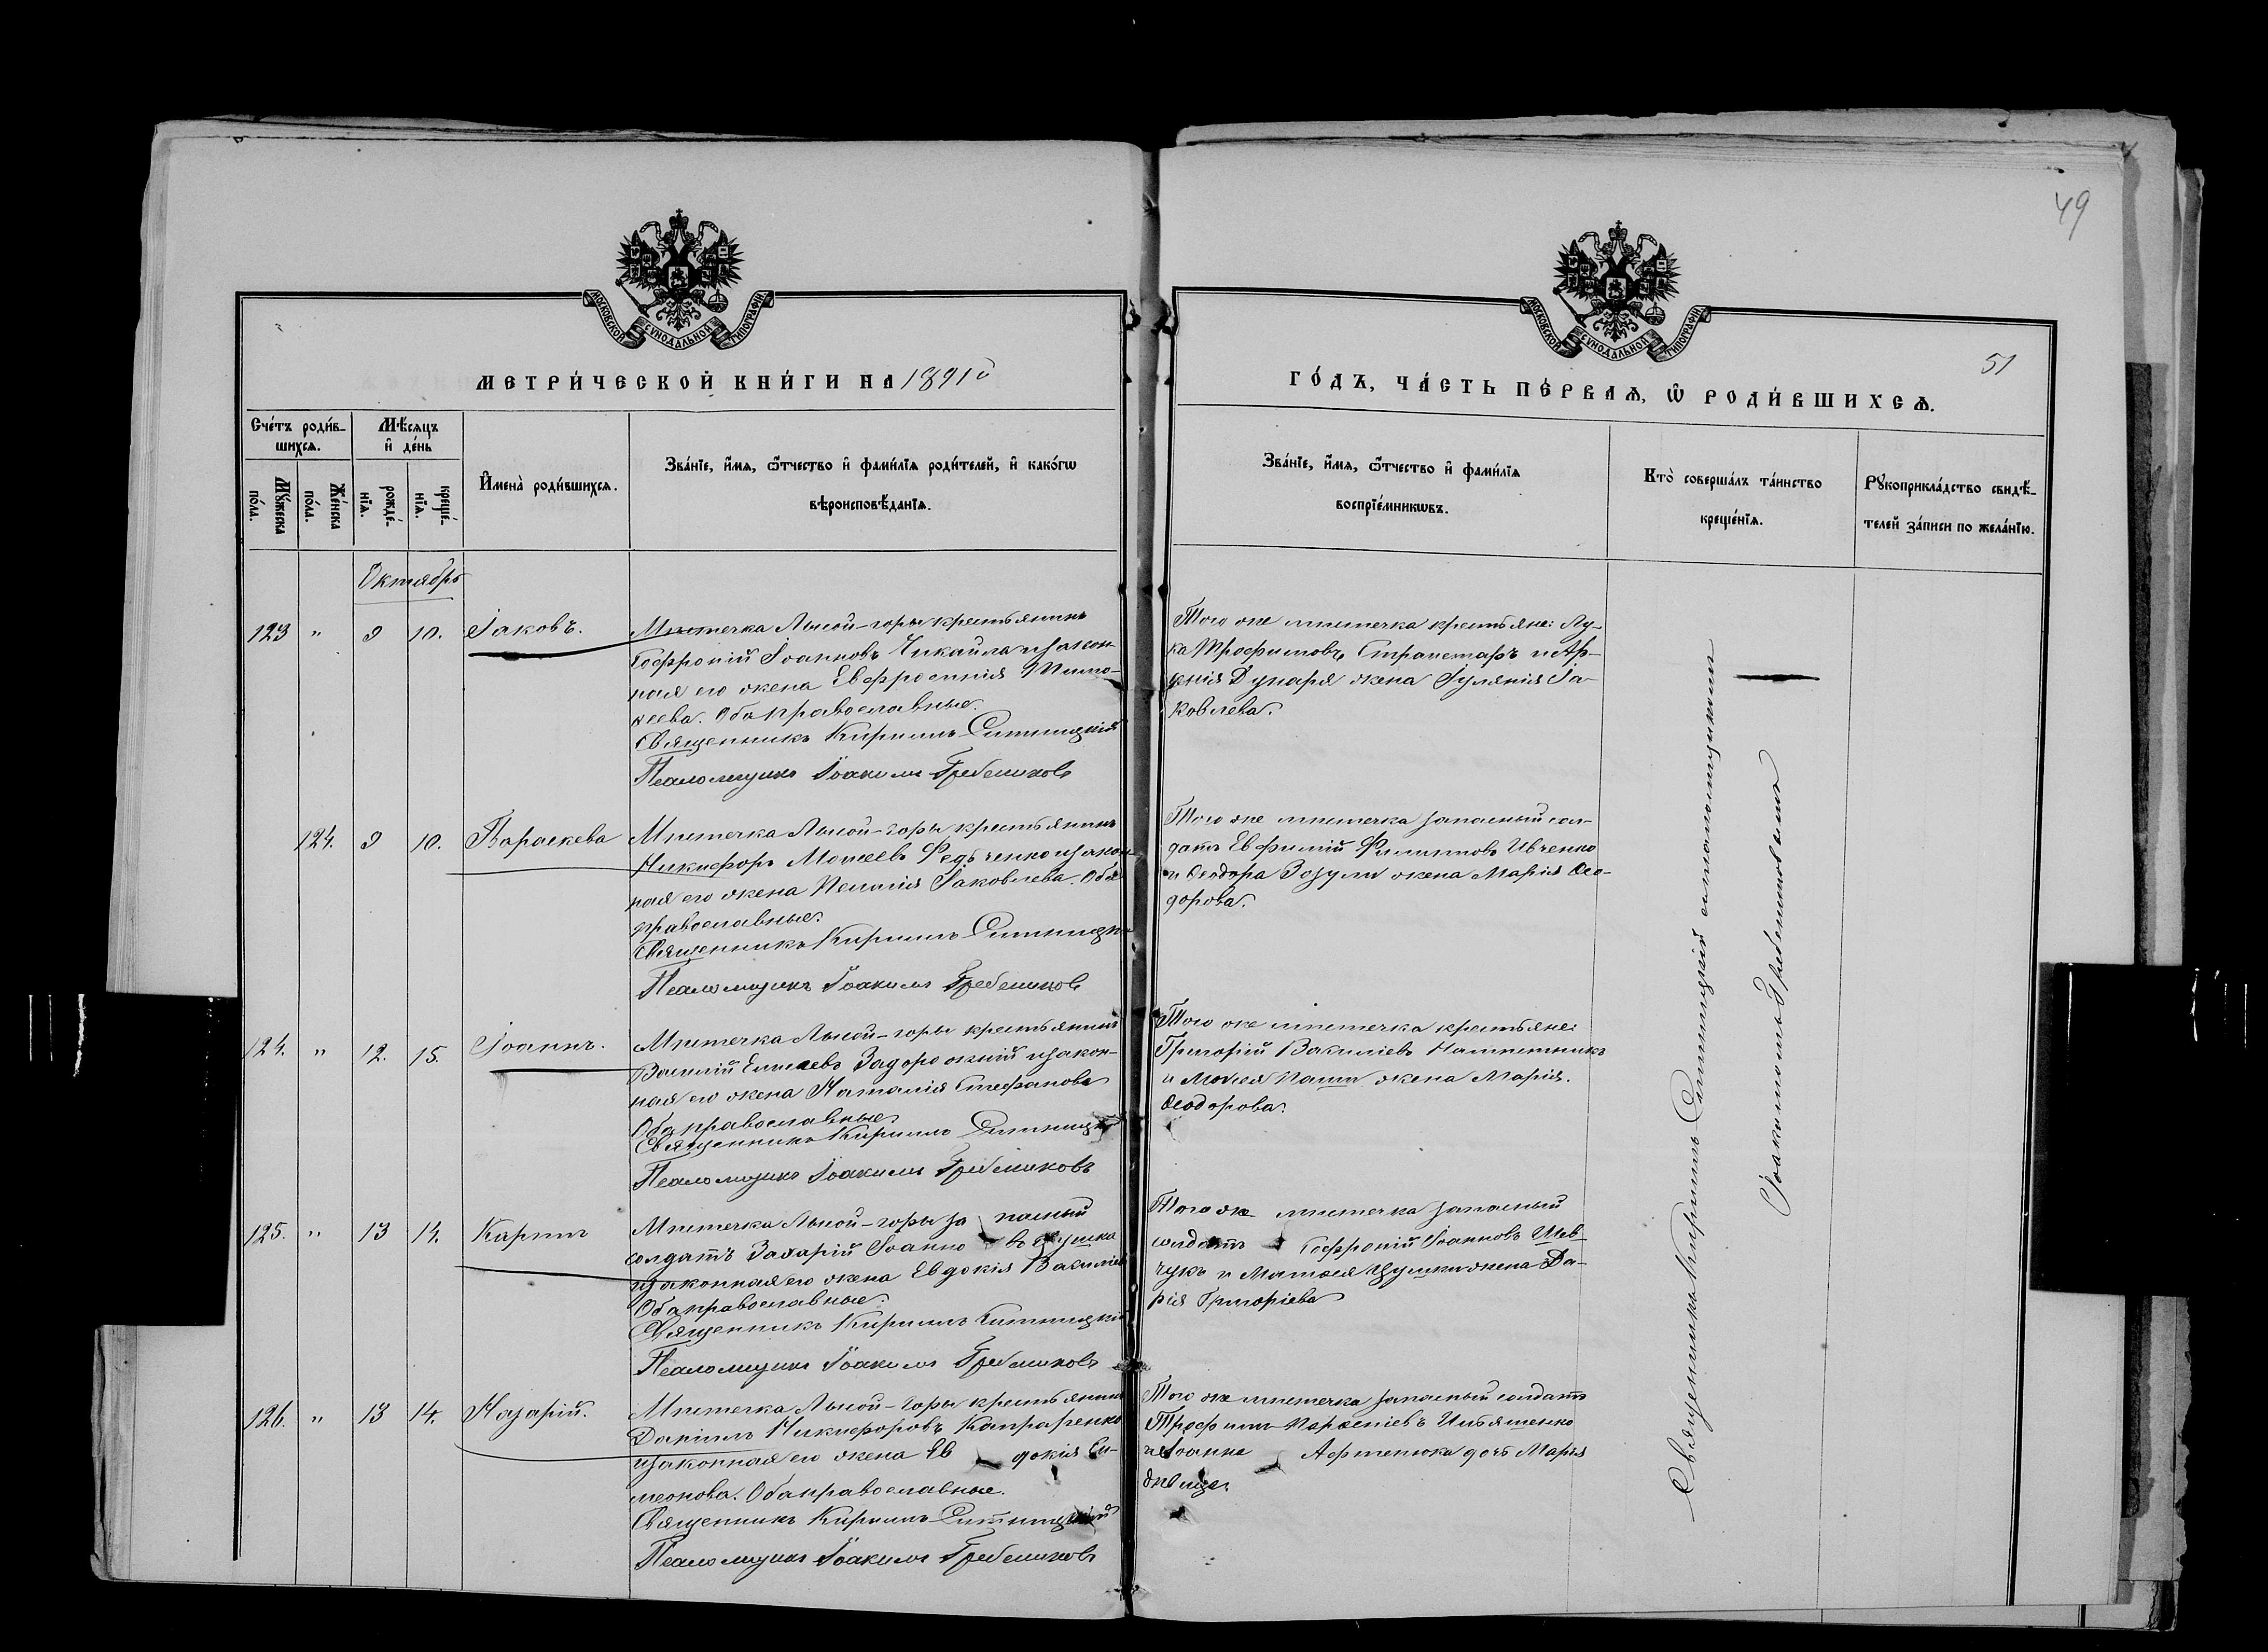 49
МОСКОВСКОЙ СѴНОДАЛЬНОЙ ТИПОГРАФІИ.
МОСКОВСКОЙ СѴНОДАЛЬНОЙ ТИПОГРАФІИ.
51
МЕТРИ́ЧЕСКОЙ КНИ́ГИ НА 1891й
ГО́ДЪ, ЧА́СТЬ ПЕ́РВАѦ, Ѡ҆ РОДИ́ВШИХСѦ.
Сче́тъ роди́в-
шихсѧ.
Мꙋ́жеска
по́ла.
Же́нска
по́ла.
Мѣ́сѧцъ
и҆ де́нь
рожде́-
нїѧ.
креще́-
нїѧ.
И҆мена̀ роди́вшихсѧ.
Зва́нїе, и҆́мѧ, ѻ҆́тчество и҆ фами́лїѧ роди́телей, и҆ како́гѡ
вѣроисповѣ́данїѧ.
Зва́нїе, и҆́мѧ, ѻ҆́тчество и҆ фами́лїѧ
воспрїе́мникѡвъ.
Кто̀ соверша́лъ та́инство
креще́нїѧ.
Рꙋкоприкла́дство свидѣ́-
телей за́писи по жела́нїю.
Октябрь
123 " 9 10. Іаковъ.
Мѣстечка Лысой-горы крестьянинъ
Софроній Іоанновъ Чикайла и закон-
ная его жена Евфросинія Тимо-
ѳеева. Оба православные.
Священникъ Кириллъ Ситницкій
Псаломщикъ Іоакимъ Гребениковъ
Того же мѣстечка крестьяне: Лу-
ка Трофимовъ и
жена Іуліанія Іа-
ковлева.
124. 9 10. Параскева
Мѣстечка Лысой-горы крестьянинъ
Никифоръ Моисеевъ Федьченко и закон-
ная его жена Іаковлева. Оба
православные.
Священникъ Кириллъ Ситницкій
Псаломщикъ Іоакимъ Гребениковъ
Того же мѣстечка запасный сол-
датъ Евфимій Филипповъ Ивченко
и Ѳеодора Зозули жена Марія Ѳео-
дорова.
124. " 12. 15. Іоаннъ.
Мѣстечка Лысой-горы крестьянинъ
Василій Елисеевъ Задорожній и закон-
ная его жена Наталія Стефанова
Оба православные.
Священникъ Кириллъ Ситницкій
Псаломщикъ Іоакимъ Гребениковъ
Того же мѣстечка крестьяне:
Григорій Василіевъ
и Моисея жена Марія
Ѳеодорова.
125. " 13 14. Карпъ
Мѣстечка Лысой-горы запасный
солдатъ Захарій Іоанновъ
и законная его жена Евдокія Василіев
Оба православные.
Священникъ Кириллъ Ситницкій
Псаломщикъ Іоакимъ Гребениковъ
Того же мѣстечка запасный
солдатъ Софроній Іоанновъ Шев-
чукъ и Матѳея жена Да-
рія Григоріева
126. " 13 14. Назарій.
Мѣстечка Лысой-горы крестьянинъ
Даніилъ Никифоровъ
и законная его жена Евдокія Си-
меонова. Оба православные.
Священникъ Кириллъ Ситницкій
Псаломщикъ Іоакимъ Гребениковъ
Того же мѣстечка запасный солдатъ
Трофимъ Ильяшенко
и Іоанна дочь Марія
дѣвица.
Священникъ Кириллъ Ситницкій съ псаломщикомъ
Іоакимомъ Гребениковымъ